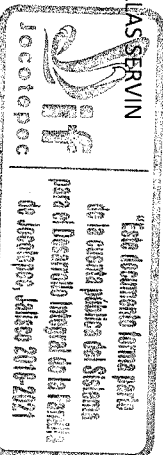 LAS SERVIN
DIF
Jocotepec
"Este documento forma parte
de la cuenta pública del Sistema
para el Desarrollo Integral de la Familia
de Jocotepec, Jalisco 2018-2021